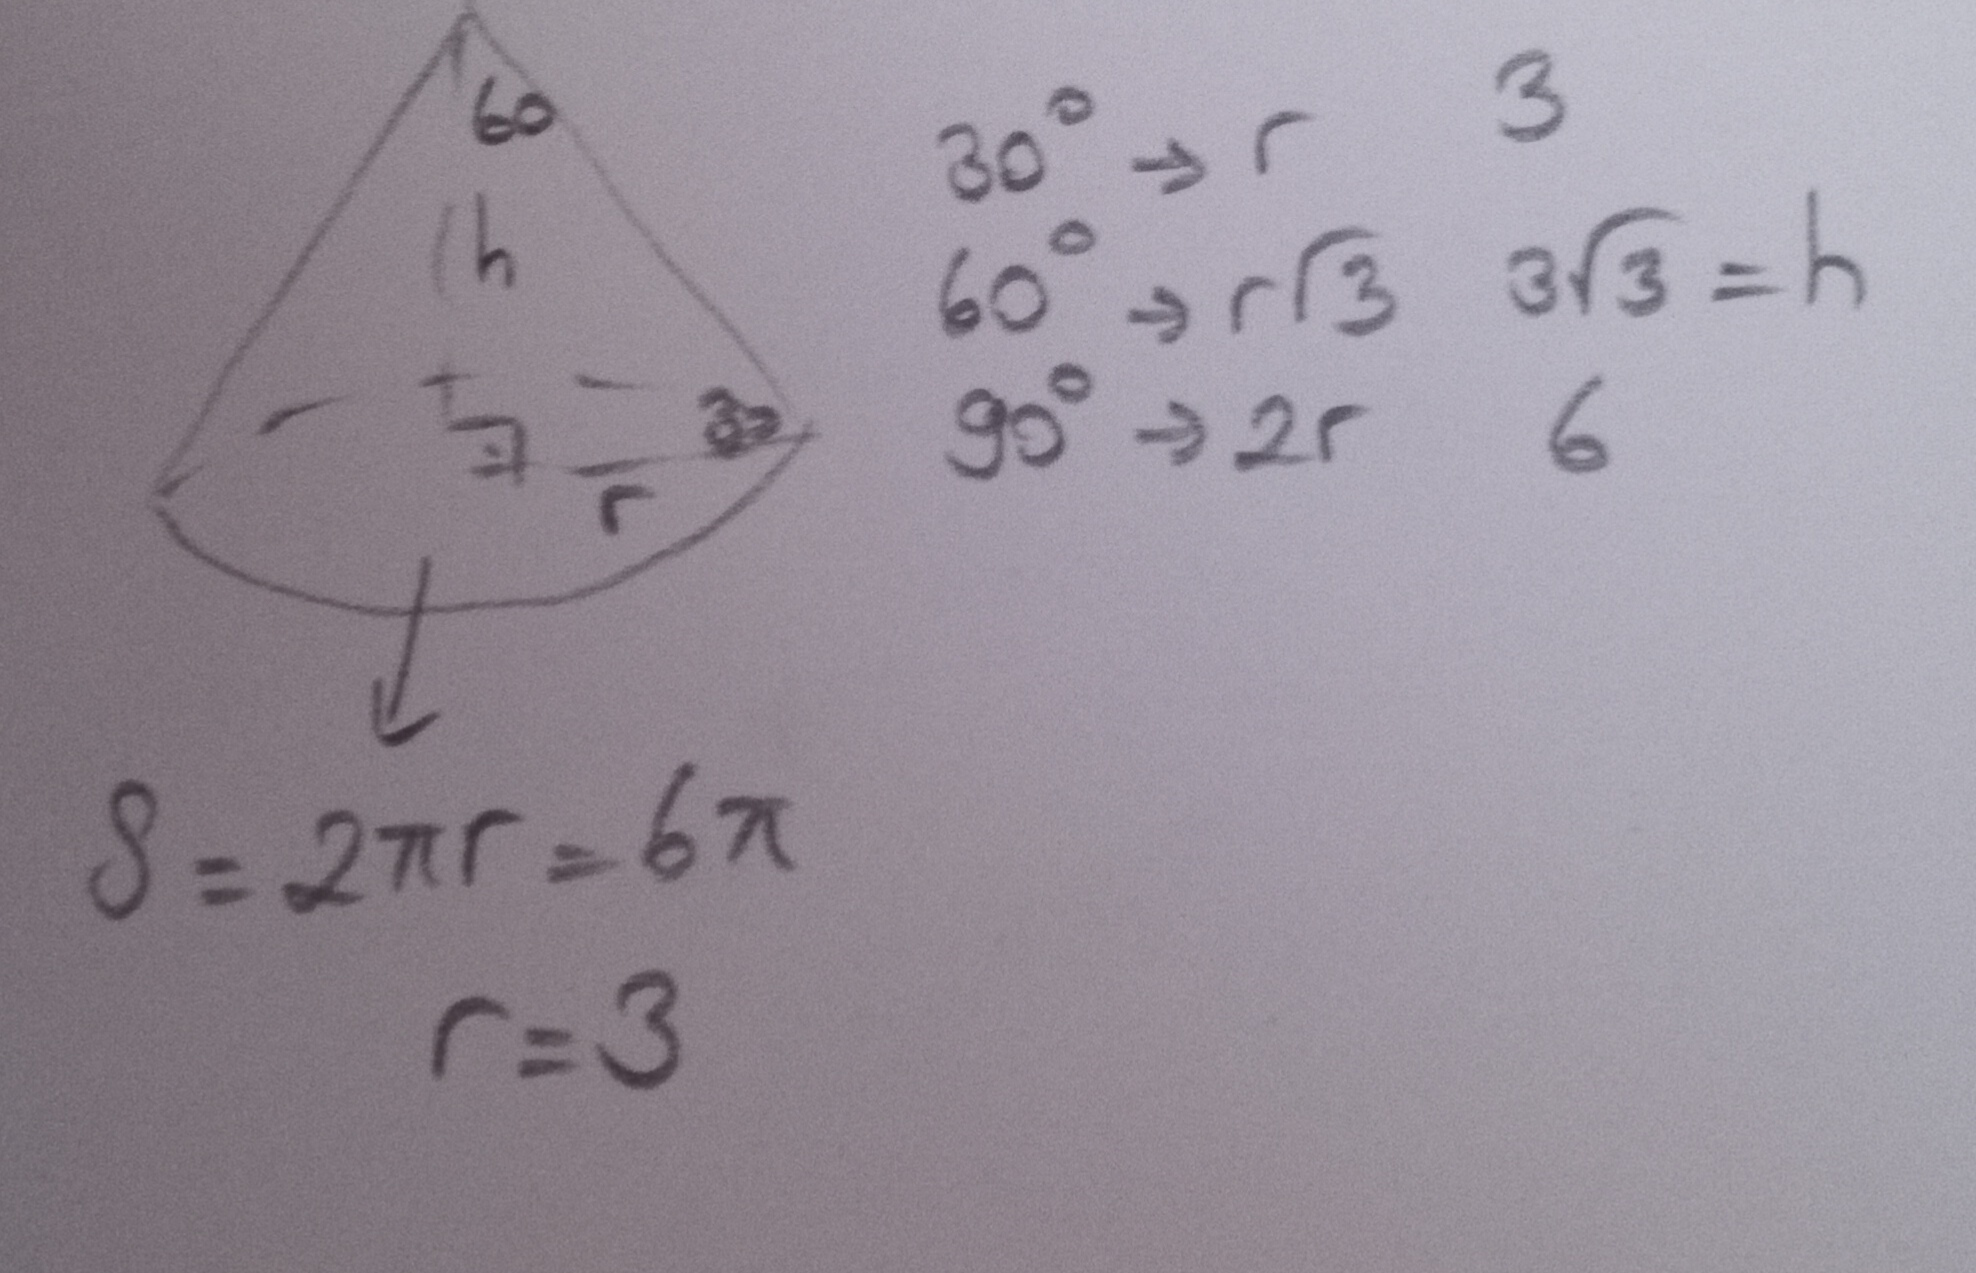 60
h
30
r
30° → r 3
60° → r√3 3√3 = h
90° → 2r 6
S = 2πr = 6π
r = 3